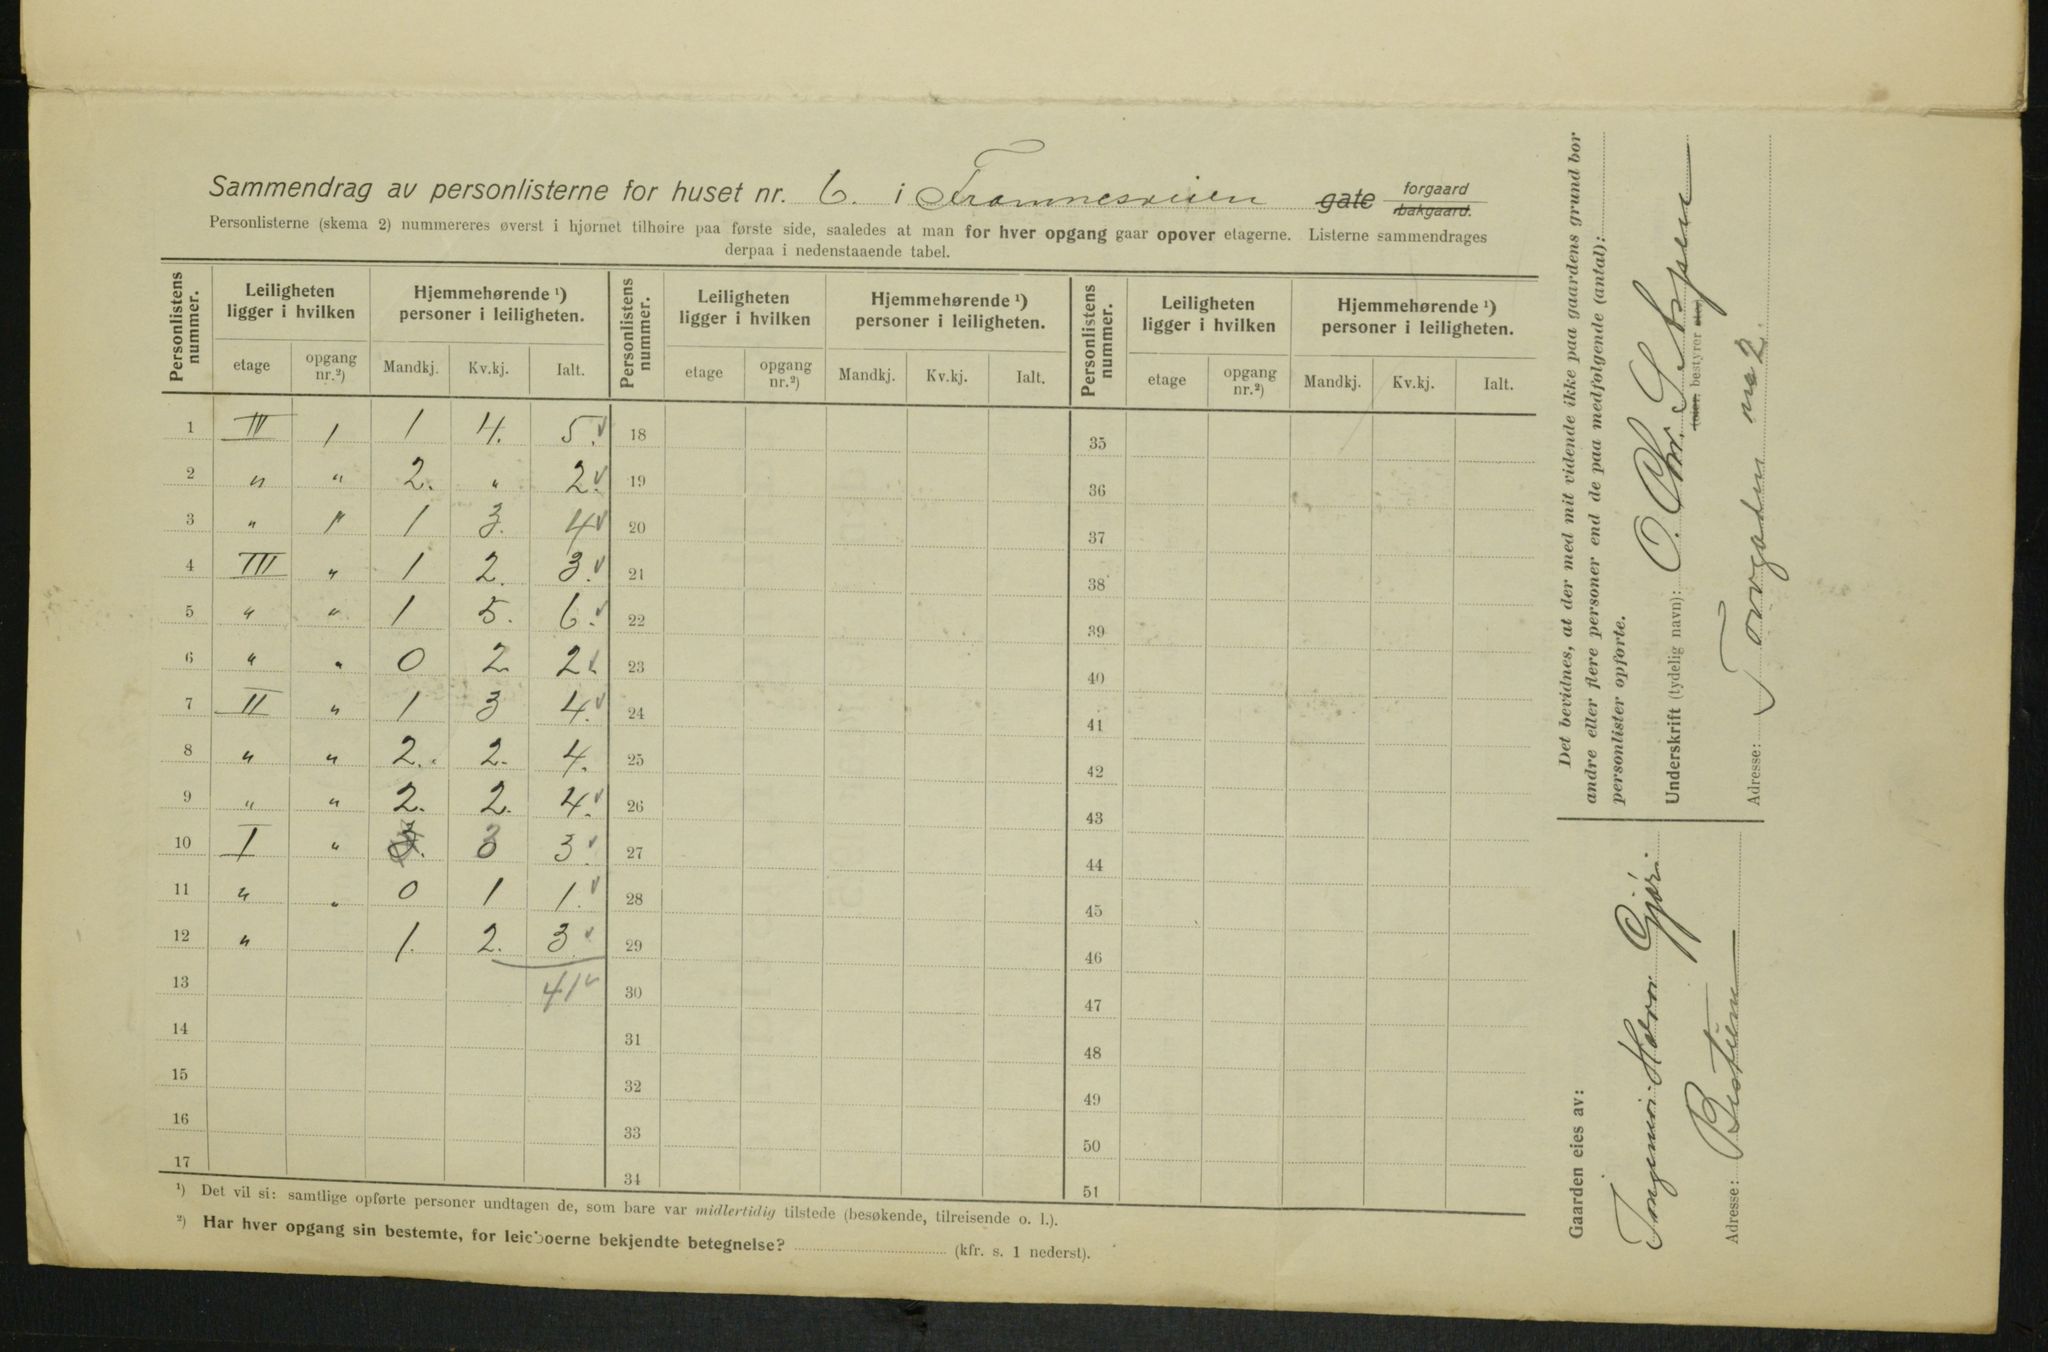 Sammendrag av personlisterne for huset nr. 6. i Framnesveien gate forgaard bakgaard.
Personlisterne (skema 2) nummereres øverst i hjørnet tilhøire paa første side, saaledes at man for hver opgang gaar opover etagerne. Listerne sammendrages
derpaa i nedenstaaende tabel.
Personlistens nummer. Leiligheten ligger i hvilken Hjemmehørende ¹) personer i leiligheten. Personlistens nummer. Leiligheten ligger i hvilken Hjemmehørende ¹) personer i leiligheten. Personlistens nummer. Leiligheten ligger i hvilken Hjemmehørende ¹) personer i leiligheten.
etage opgang nr.²) Mandkj. Kv.kj. Ialt. etage opgang nr.²) Mandkj. Kv.kj. Ialt. etage opgang nr.²) Mandkj. Kv.kj. Ialt.
1 IV 1 1 4. 5. 18 35
2 " " 2. " 2. 19 36
3 " " 1 3. 4 20 37
4 III " 1 2. 3. 21 38
5 " " 1 5. 6. 22 39
6 " " 0 2. 2. 23 40
7 II " 1 3 4. 24 41
8 " " 2. 2. 4. 25 42
9 " " 2. 2. 4. 26 43
10 I " 3. 3 3. 27 44
11 " " 0 1 1. 28 45
12 " 1. 2. 3. 29 46
13 41 30 47
14 31 48
15 32 49
16 33 50
17 34 51
¹) Det vil si: samtlige opførte personer undtagen de, som bare var midlertidig tilstede (besøkende, tilreisende o. l.).
²) Har hver opgang sin bestemte, for leieboerne bekjendte betegnelse? (kfr. s. 1 nederst).
Det bevidnes, at der med mit vidende ikke paa gaardens grund bor
andre eller flere personer end de paa medfølgende (antal):
personlister opførte.
Underskrift (tydelig navn): O. Chr.
(eier. bestyrer etc.)
Adresse: Torvgaden no 2.
Gaarden eies av:
Gjør
Adresse: Bestum